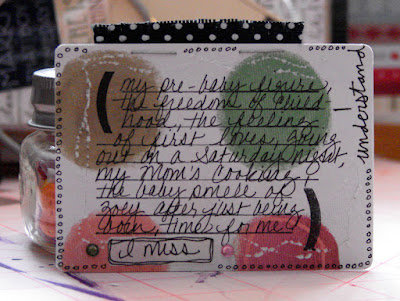 (my pre-baby figure,
the freedoms of child-
hood, the feeling
of first loves, going
out on a Saturday night,
my Mom's cooking,
the baby smell of
Zoey after just being
born, time for me)
I miss
understand